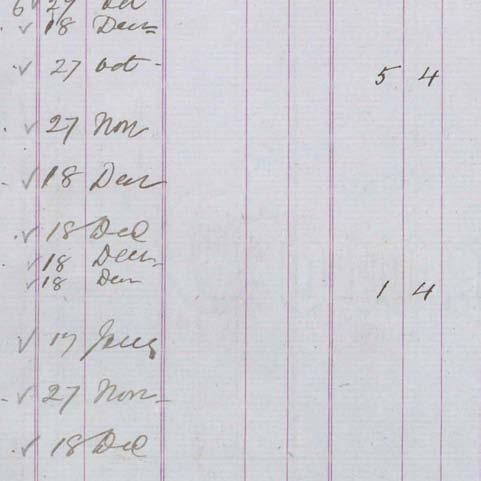 6 ✓ 27 Oct
✓ 18 Decr
✓ 27 Oct - 5 4
✓ 27 Nov
✓ 18 Decr
✓ 18 Dec
✓ 18 Decr
✓ 18 Decr 1 4
✓ 17 Jany
✓ 27 Novr
✓ 18 Dec